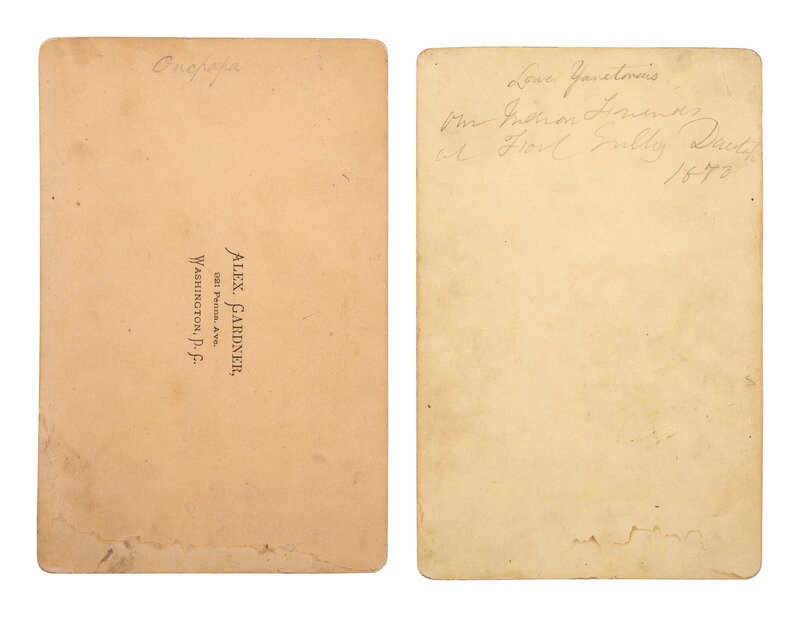 Oncpapa
ALEX. GARDNER,
921 Penna. Ave.
WASHINGTON, D. C.
Lower Yanctonais.
Our Indian Friends
at Fort Sully Dacotah
1870